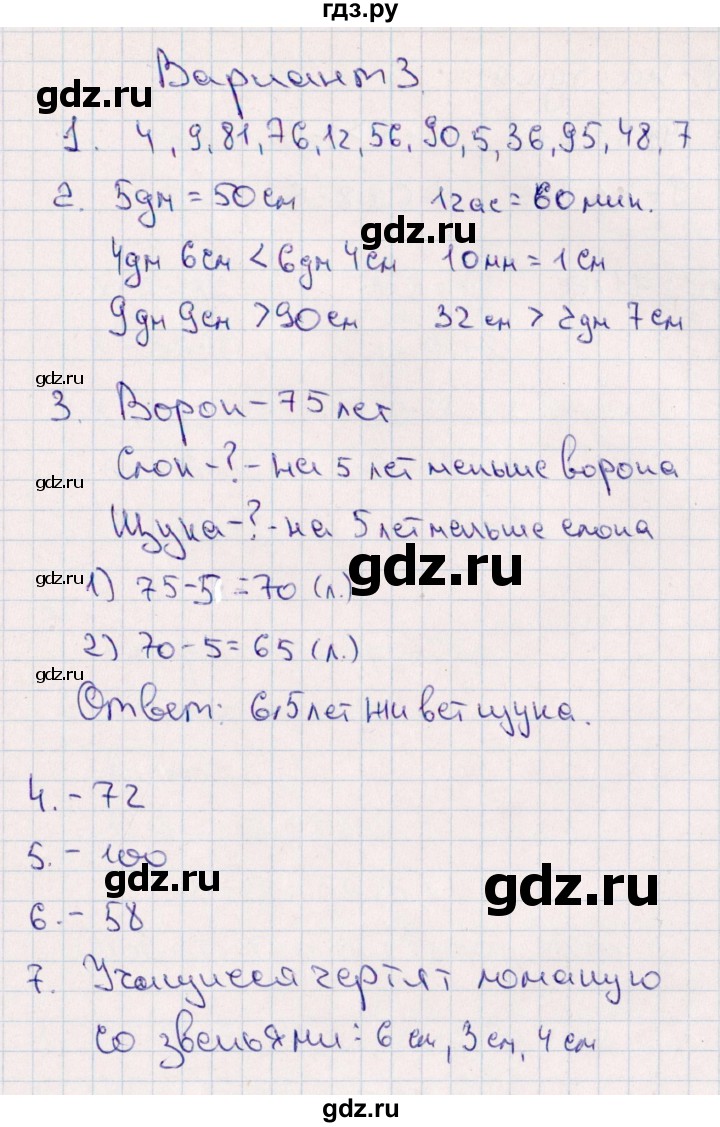 гдз.ру
Вариант 3.
1. 4, 9, 81, 76, 12, 56, 90, 5, 36, 95, 48, 7
2. 5дм = 50см 1час = 60мин.
4дм 6см < 6дм 4см 10мм = 1см
9дм 9см > 90см 32см > 2дм 7см
3. Ворон - 75 лет
Слон - ? - на 5 лет меньше ворона
Щука - ? - на 5 лет меньше слона
1) 75 - 5 = 70 (л.)
2) 70 - 5 = 65 (л.)
Ответ: 65 лет живет щука.
4. - 72
5. - 100
6. - 58
7. Учащиеся чертят ломаную
со звеньями: 6 см, 3 см, 4 см
gdz.ru
gdz.ru
gdz.ru
gdz.ru
gdz.ru
gdz.ru
gdz.ru
gdz.ru
gdz.ru
gdz.ru